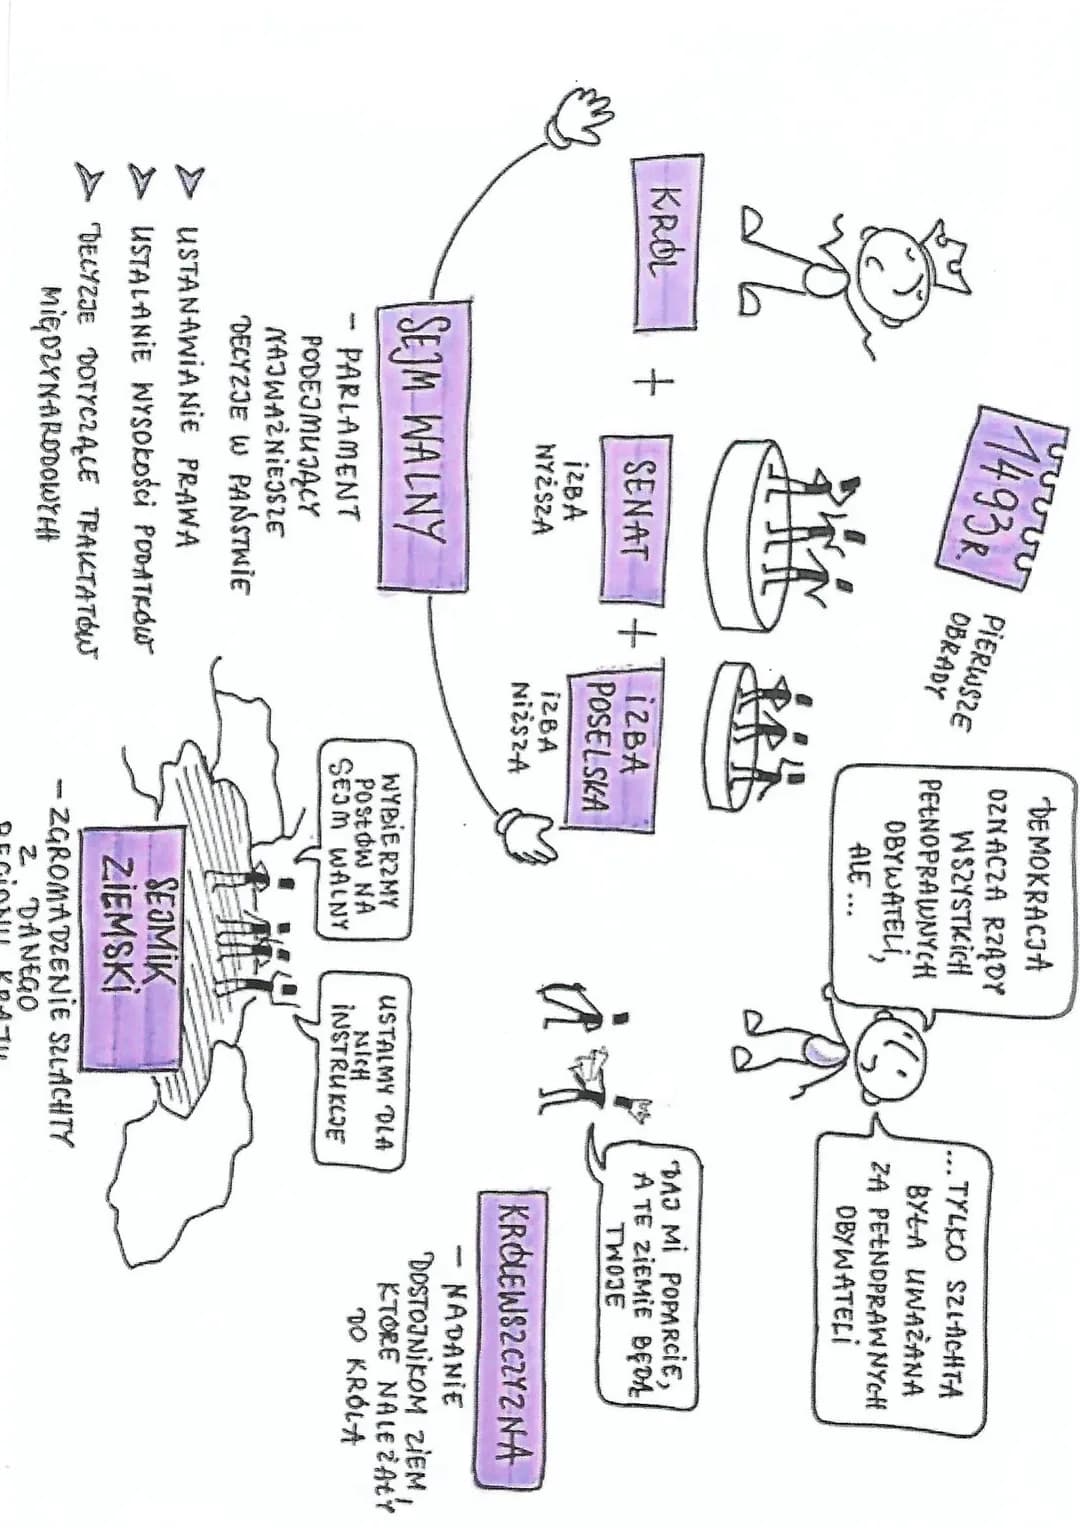 1493 R.
PIERWSZE
OBRADY
KRÓL + SENAT + IZBA
POSELSKA
IZBA
WYŻSZA
IZBA
NIŻSZA
SEJM WALNY
- PARLAMENT
PODEJMUJĄCY
NAJWAŻNIEJSZE
DECYZJE W PAŃSTWIE
➤ USTANAWIANIE PRAWA
➤ USTALANIE WYSOKOŚCI PODATKÓW
➤ DECYZJE DOTYCZĄCE TRAKTATÓW
MIĘDZYNARODOWYCH
DEMOKRACJA
OZNACZA RZĄDY
WSZYSTKICH
PEŁNOPRAWNYCH
OBYWATELI,
ALE...
... TYLKO SZLACHTA
BYŁA UWAŻANA
ZA PEŁNOPRAWNYCH
OBYWATELI
DAJ MI POPARCIE,
A TE ZIEMIE BĘDĄ
TWOJE
KRÓLEWSZCZYZNA
- NADANIE
DOSTOJNIKOM ZIEM,
KTÓRE NALEŻAŁY
DO KRÓLA
WYBIERZMY
POSŁÓW NA
SEJM WALNY
USTALMY DLA
NICH
INSTRUKCJE
SEJMIK
ZIEMSKI
- ZGROMADZENIE SZLACHTY
Z DANEGO
REGIONU KRAJU